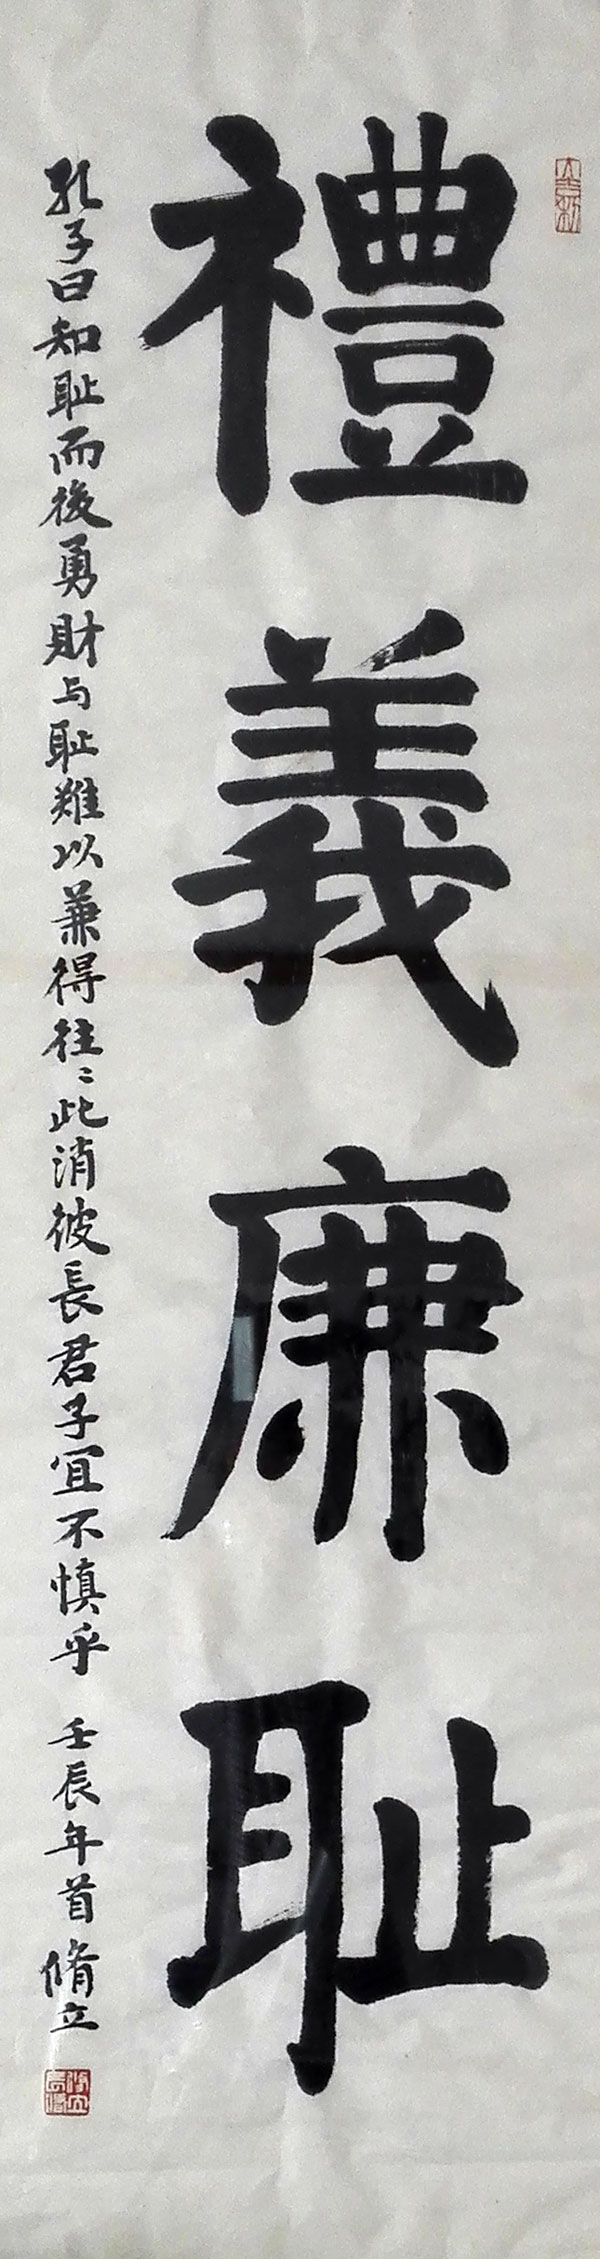 禮義廉耻
孔子曰知耻而後勇財与耻難以兼得往〻此消彼長君子宜不慎乎 壬辰年首 脩立